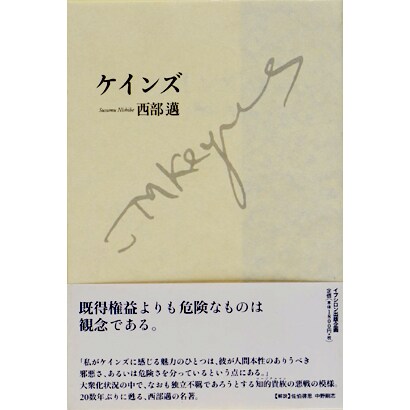 ケインズ
Susumu Nishibe 西部 邁
JMKeynes
既得権益よりも危険なものは
観念である。
「私がケインズに感じる魅力のひとつは、彼が人間本性のありうべき
邪悪さ、あるいは危険さを分っているという点にある。」
大衆化状況の中で、なおも独立不羈であろうとする知的貴族の悪戦の模様。
20数年ぶりに甦る、西部邁の名著。
【解説】佐伯啓思 中野剛志
イプシロン出版企画